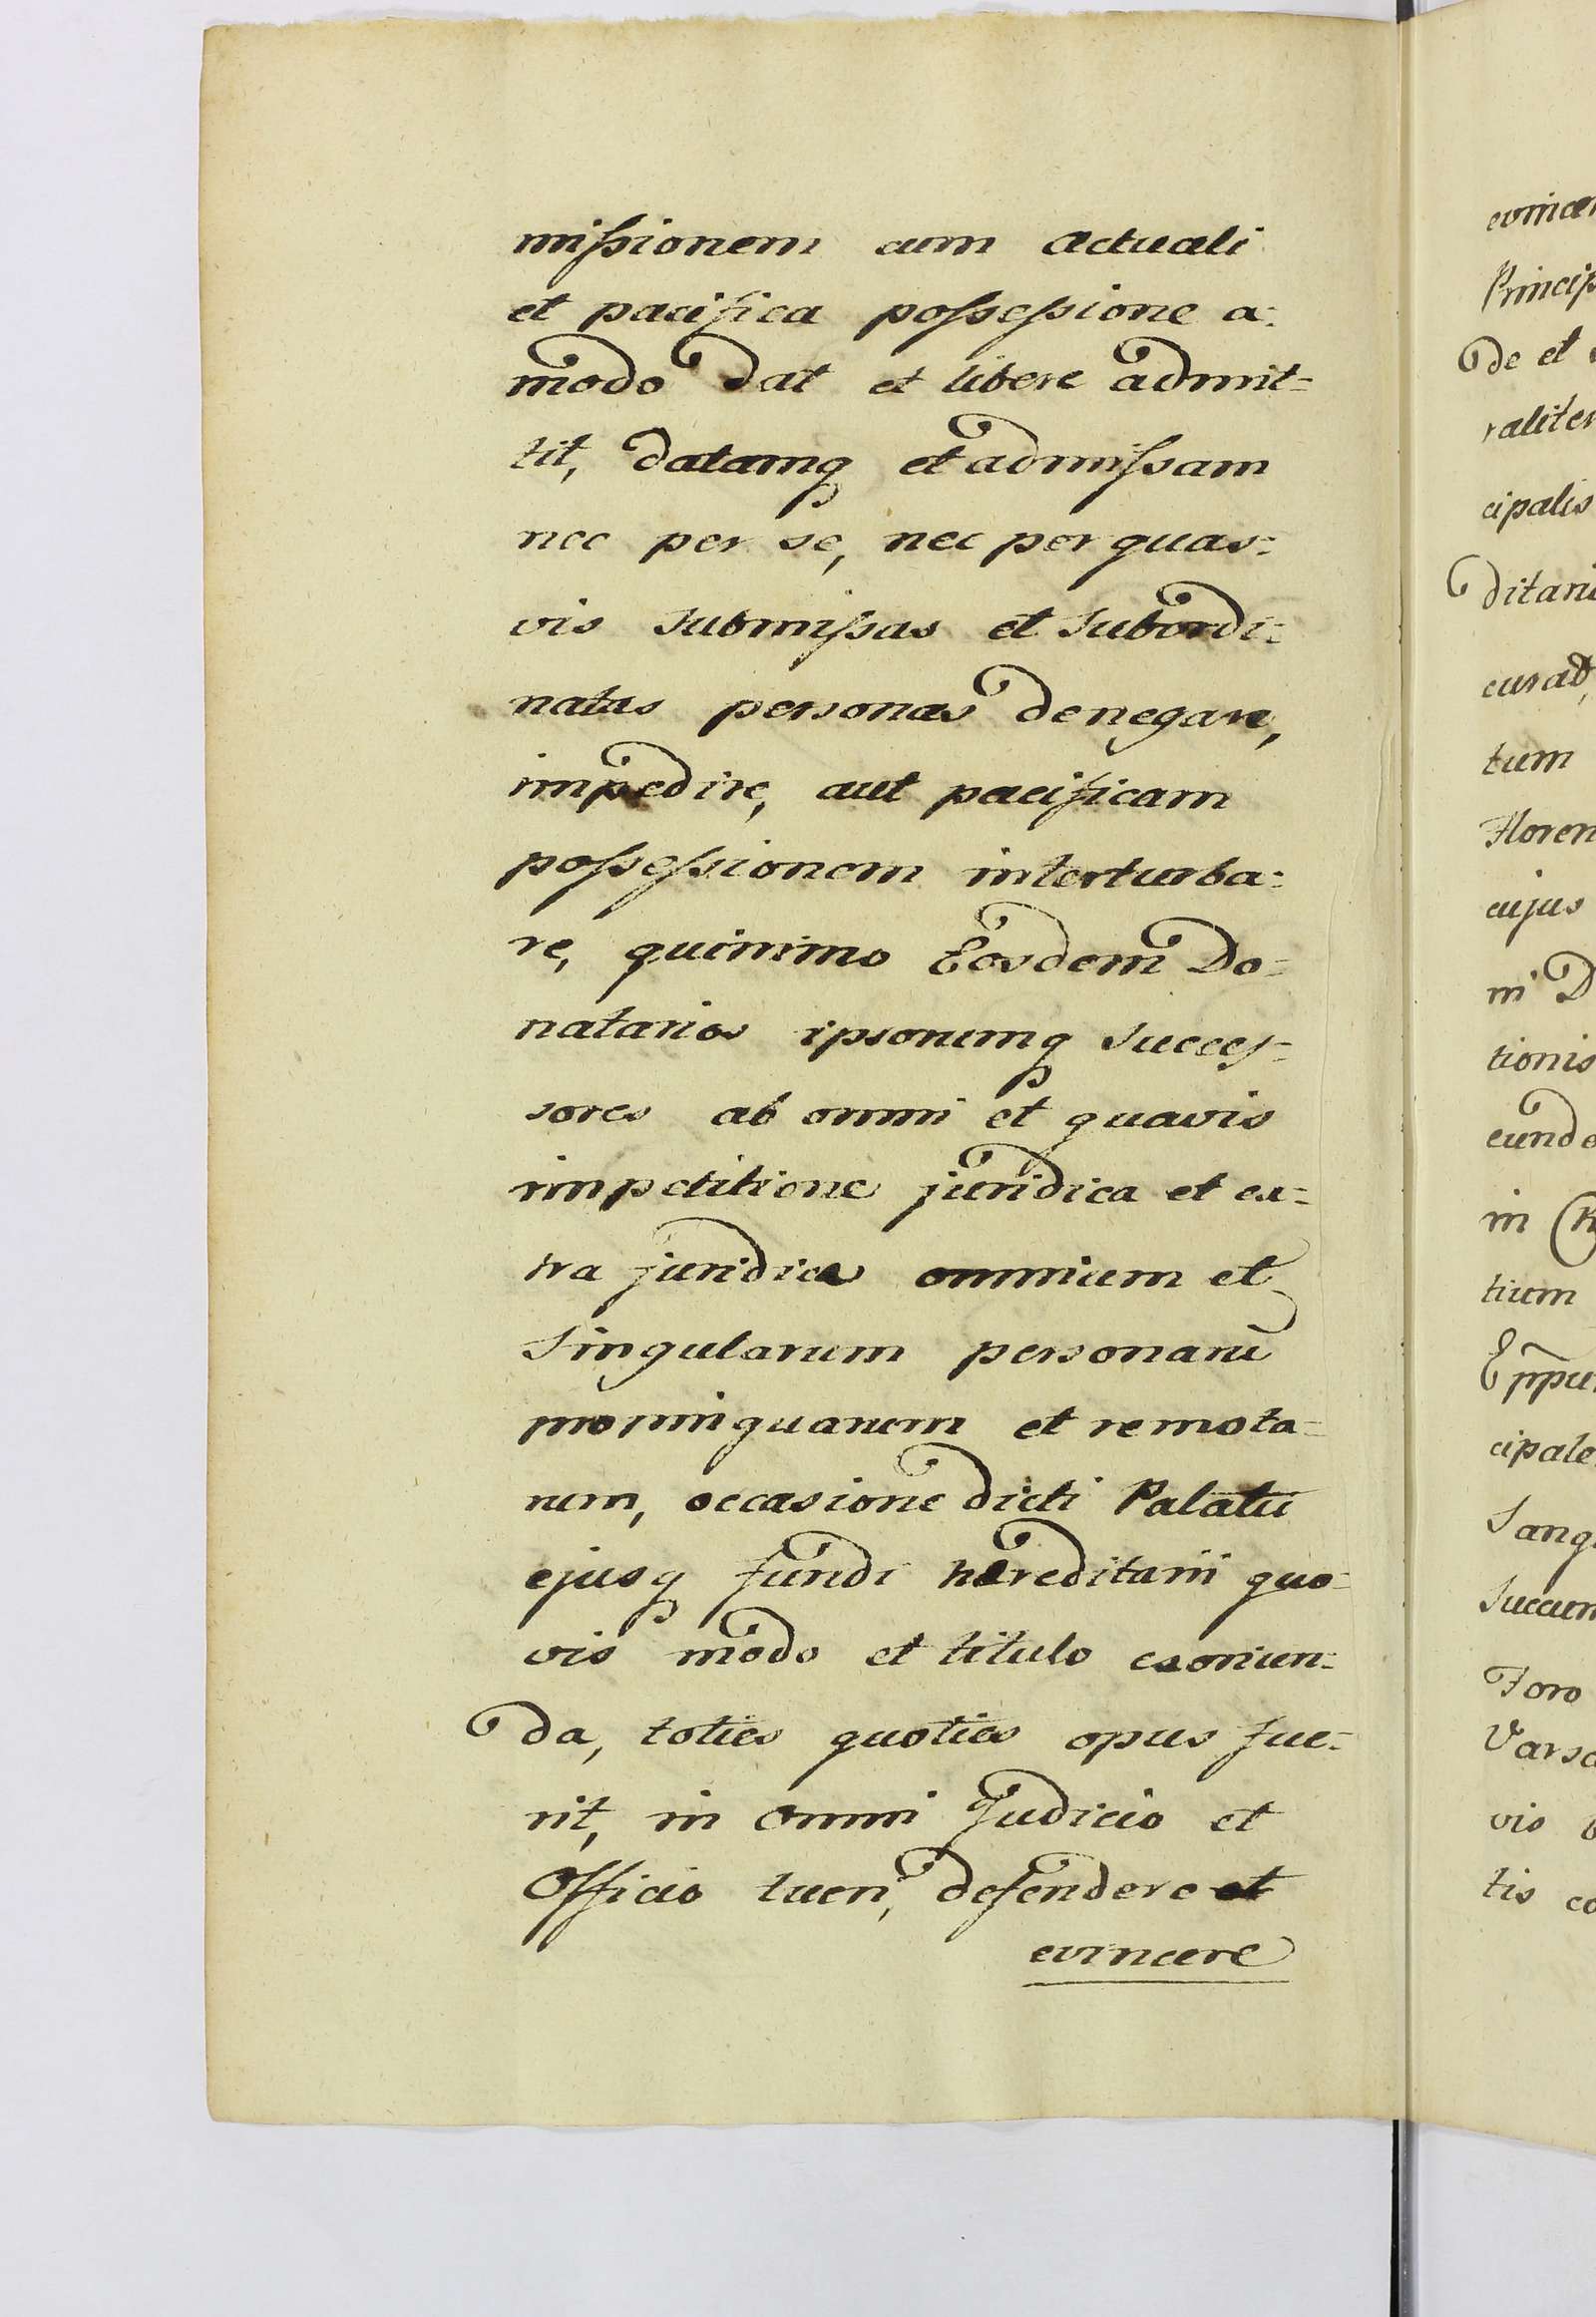 missionem cum actuali
et pacifica possessione a:
modo dat et libere admit-
tit, datamq et admissam
nec per se, nec per quas:
vis submissas et subordi:
natas personas denegare,
impedire, aut pacificam
possessionem interturba:
re, quinimo Eosdem Do:
natarios ipsorumq succes:
sores ab omni et quavis
impetitione juridica et ex:
tra juridica omnium et
singularum personarū
propinquarum et remota-
rum, occasione dicti Palatii
ejusq fundi hæreditarii quo-
vis modo et titulo exoriun:
da, toties quoties opus fue:
rit, in omni Judicio et
Officio tueri, defendere et
evincere
evincer
Princip
de et
raliter
cipalis
ditari
curat,
tum
Floren
cujus
ni D
tionis
eunde
in
tium
cipale
Sang
succum
Foro
Varsa
vis
tis co